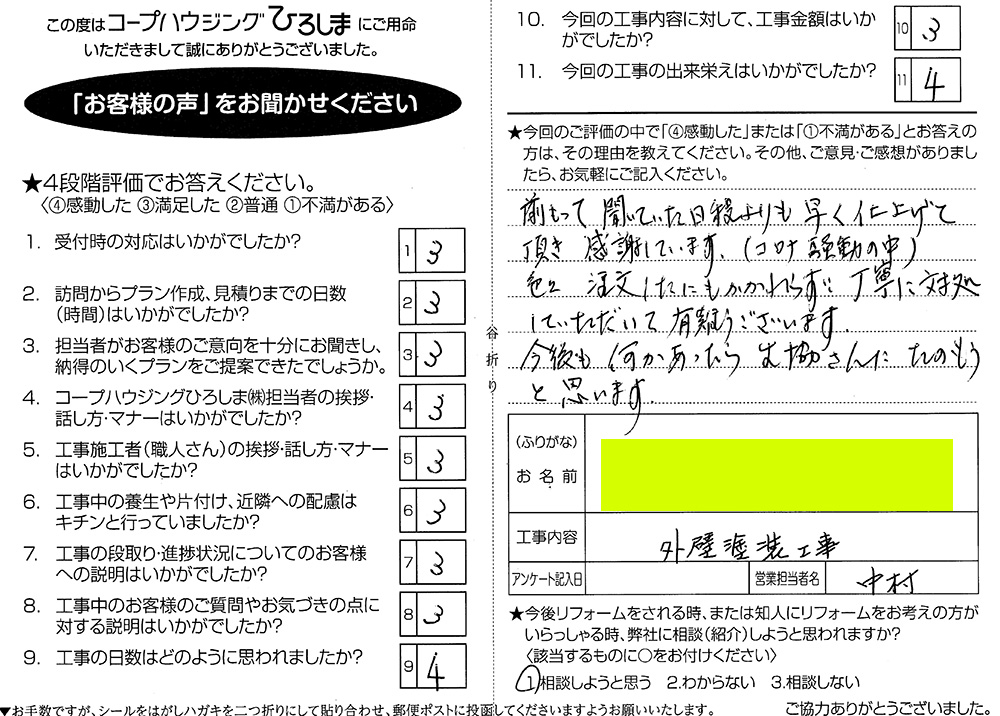 この度はコープハウジングひろしまにご用命
いただきまして誠にありがとうございました。
「お客様の声」をお聞かせください
★4段階評価でお答えください。
〈④感動した ③満足した ②普通 ①不満がある〉
1. 受付時の対応はいかがでしたか?
1 3
2. 訪問からプラン作成、見積りまでの日数
(時間)はいかがでしたか?
2 3
3. 担当者がお客様のご意向を十分にお聞きし、
納得のいくプランをご提案できたでしょうか。
3 3
4. コープハウジングひろしま㈱担当者の挨拶・
話し方・マナーはいかがでしたか?
4 3
5. 工事施工者(職人さん)の挨拶・話し方・マナー
はいかがでしたか?
5 3
6. 工事中の養生や片付け、近隣への配慮は
キチンと行っていましたか?
6 3
7. 工事の段取り・進捗状況についてのお客様
への説明はいかがでしたか?
7 3
8. 工事中のお客様のご質問やお気づきの点に
対する説明はいかがでしたか?
8 3
9. 工事の日数はどのように思われましたか?
9 4
谷折り
10. 今回の工事内容に対して、工事金額はいか
がでしたか?
10 3
11. 今回の工事の出来栄えはいかがでしたか?
11 4
★今回のご評価の中で「④感動した」または「①不満がある」とお答えの
方は、その理由を教えてください。その他、ご意見・ご感想がありまし
たら、お気軽にご記入ください。
前もって聞いていた日程よりも早く仕上げて
頂き感謝しています。(コロナ騒動の中)
色々注文したにもかかわらず丁寧に対処
していただいて有難うございます。
今後も何かあったら生協さんにたのもう
と思います。
(ふりがな)
お名前
工事内容 外壁塗装工事
アンケート記入日
営業担当者名 中村
★今後リフォームをされる時、または知人にリフォームをお考えの方が
いらっしゃる時、弊社に相談(紹介)しようと思われますか?
〈該当するものに○をお付けください〉
1.相談しようと思う 2.わからない 3.相談しない
▼お手数ですが、シールをはがしハガキを二つ折りにして貼り合わせ、郵便ポストに投函してくださいますようお願いいたします。
ご協力ありがとうございました。